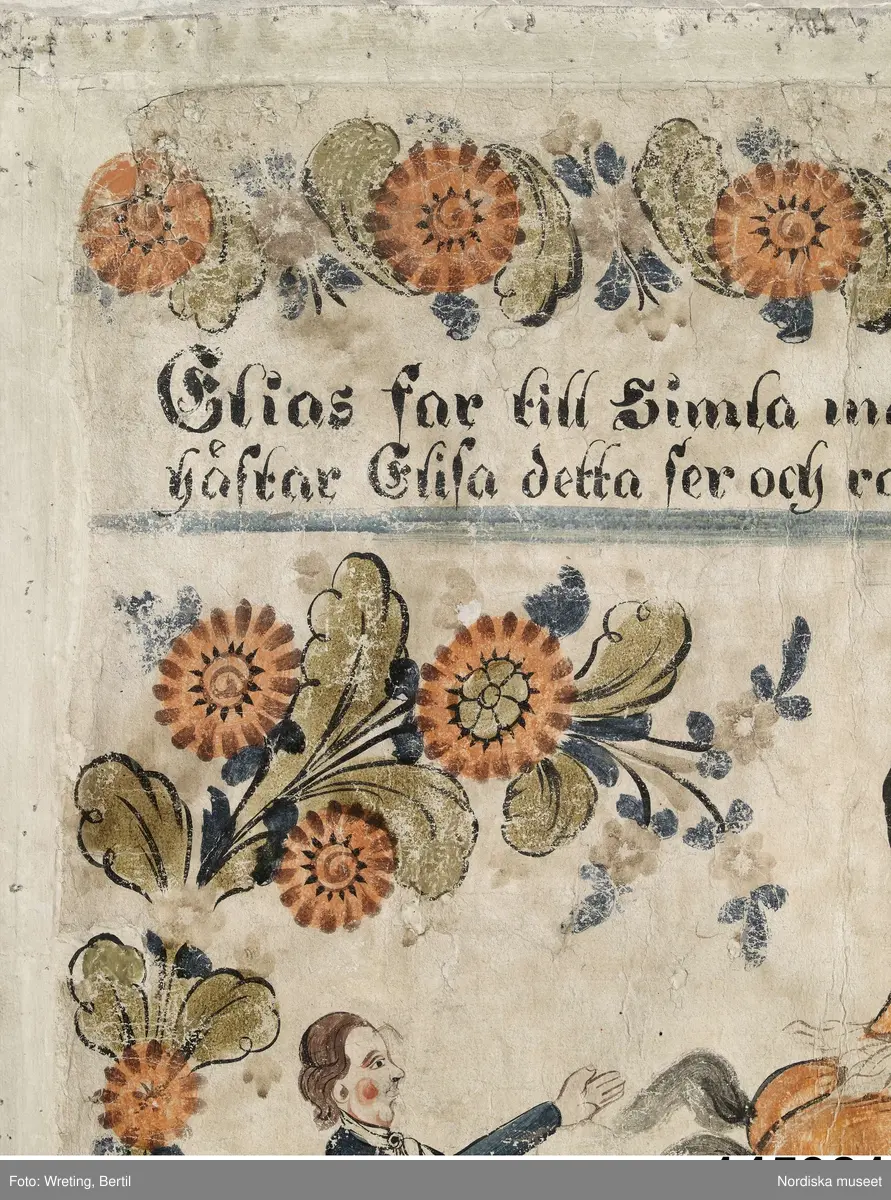 Elias far till Himla
håstar Elisa detta ser och
Foto: Wreting, Bertil
Nordiska museet